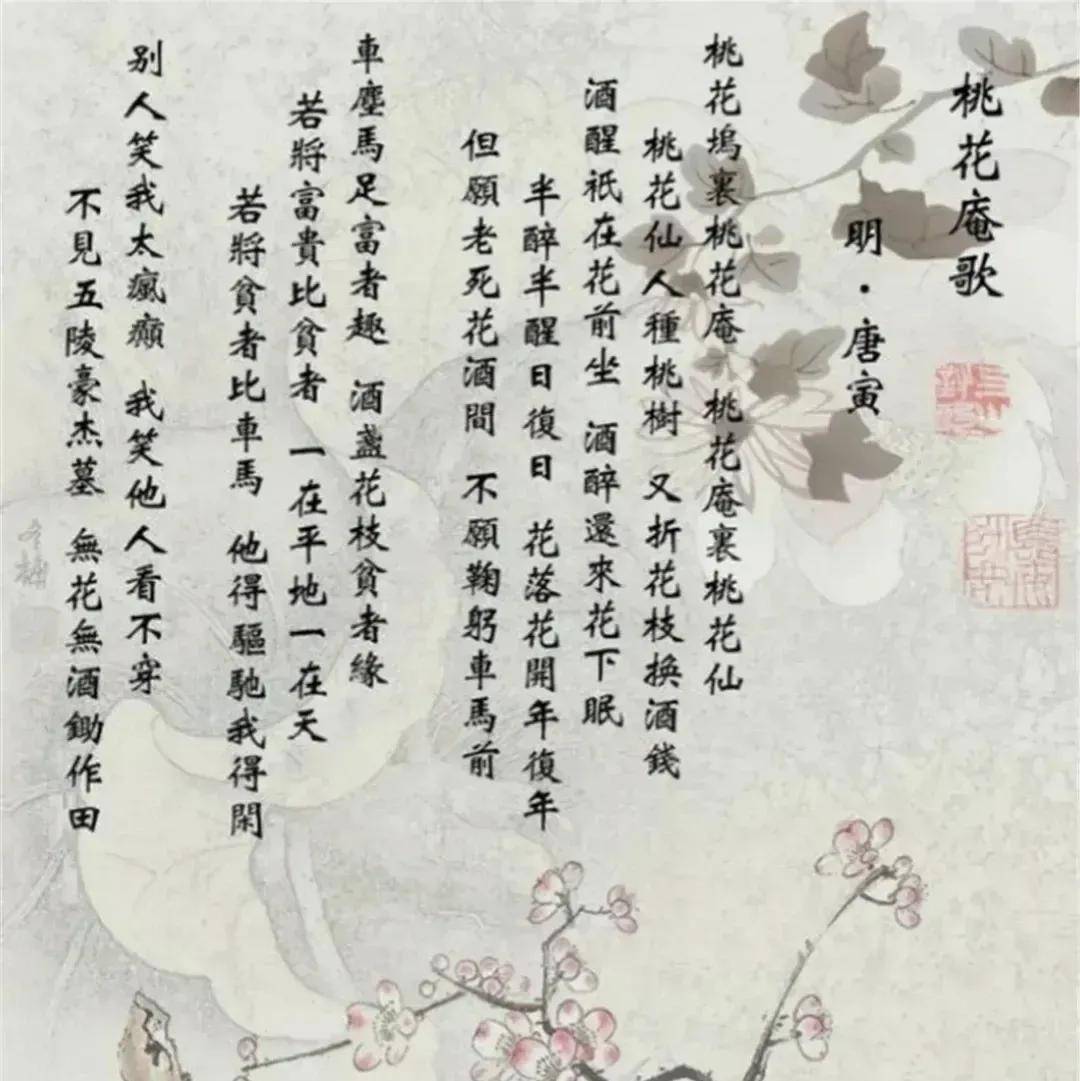 桃花庵歌
明·唐寅
桃花塢裏桃花庵 桃花庵裏桃花仙
桃花仙人種桃樹 又折花枝換酒錢
酒醒祇在花前坐 酒醉還來花下眠
半醉半醒日復日 花落花開年復年
但願老死花酒間 不願鞠躬車馬前
車塵馬足富者趣 酒盞花枝貧者緣
若將富貴比貧者 一在平地一在天
若將貧者比車馬 他得驅馳我得閑
别人笑我太瘋癲 我笑他人看不穿
不見五陵豪杰墓 無花無酒鋤作田